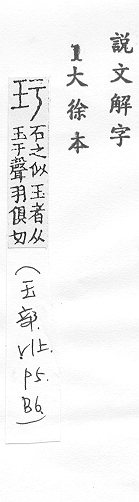 說文解字
1大徐本
玗
石之似玉者从
玉于聲羽俱切
(玉部. V1上. P5. B6.)